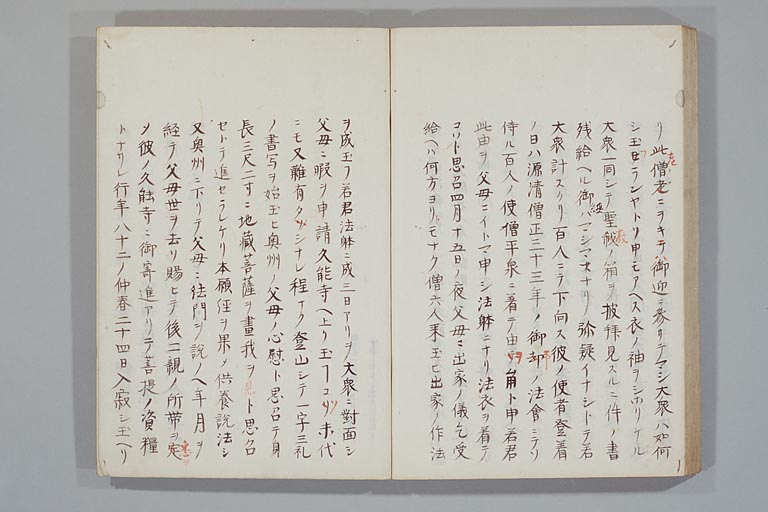 リ此僧老ニヲキテ御迎ニ参リテマシ大衆ハ如何
シ玉ヒランヤトソ申モアヘス衣ノ袖ヲシホリケル
大衆一同シテ聖教ノ箱ヲ披拝見スルニ件ノ書
残給ヘル御経ハマシマサナリ弥疑イナシトテ若
大衆計スクリ百人ニテ下向ス彼ノ使者登着
ノ日ハ源清僧正三十三年ノ御却ノ法會ニテソ
侍ル百人ノ使僧平泉ニ著テ由ヲ角ト申若君
此由ヲ父母ニイトマ申シ法躰ニナリ法衣ヲ着テ
コソト思召四月十五日ノ夜父母ニ出家ノ儀乞受
給ヘハ何方ヨリトモナク僧六人来玉ヒ出家ノ作法
ヲ成玉フ若君法躰ニ成三日アリテ大衆ニ對面シ
父母ニ暇ヲ申請久能寺ヘ上リ玉フコソ末代
ニモ又難有クソシナレ程ナク登山シテ一字三礼
ノ書写ヲ始玉ヒ奥州ノ父母ノ心慰ト思召テ身
長三尺二寸ニ地藏菩薩ヲ畫我ヲ見ト思召
セトテ進セラレケリ本願經ヲ果ノ供養説法シ
又奥州ニ下リテ父母ニ法門ヲ説ノヘ年月ヲ
経テ父母世ヲ去リ賜ヒテ後二親ノ所帯ヲ定
メ彼ノ久能寺ニ御寄進アリテ菩提ノ資糧
トナサレ行年八十二ノ仲春二十四日入寂シ玉ヘリ